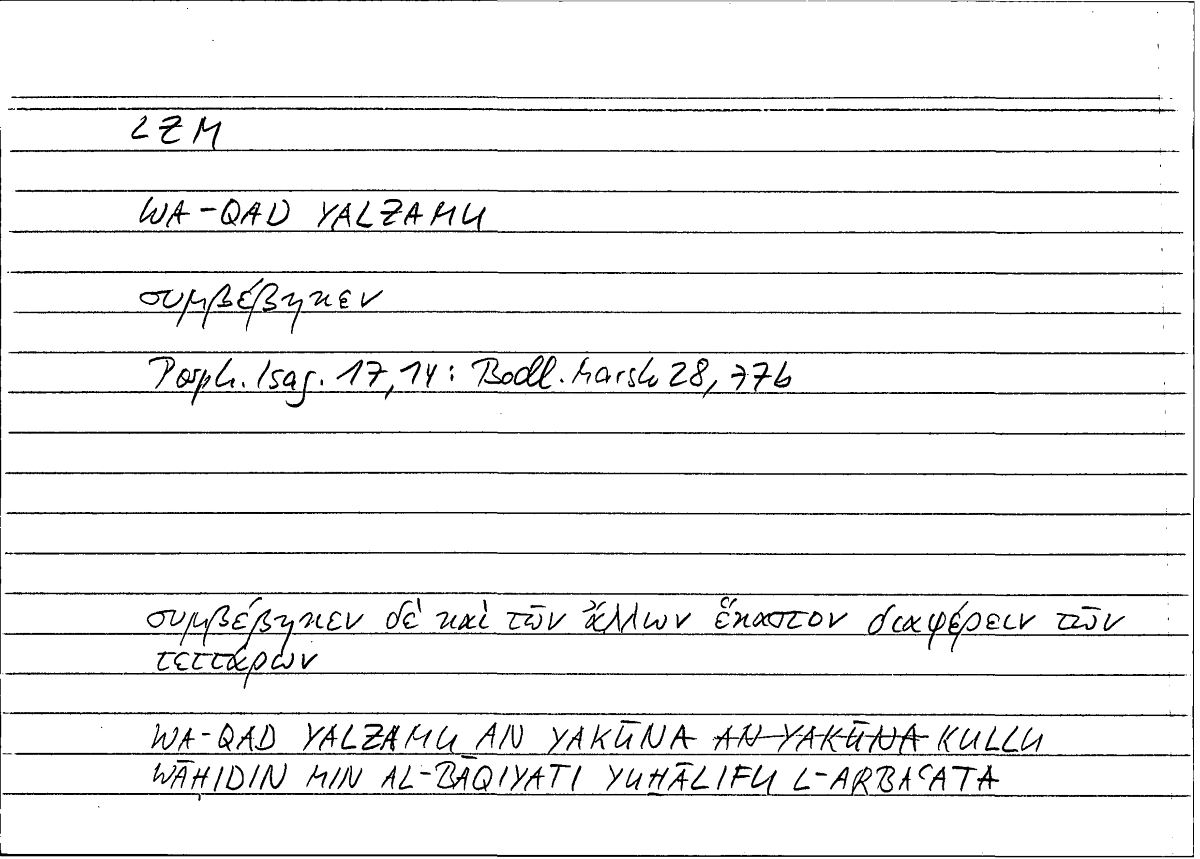 LZM
WA-QAD YALZAMU
συμβέβηκεν
Porph. Isag. 17,14: Bodl. Marsh 28, 77b
συμβέβηκεν δὲ καὶ τῶν ἄλλων ἕκαστον διαφέρειν τῶν
τεττάρων
WA-QAD YALZAMU AN YAKŪNA AN YAKŪNA KULLU
WĀḤIDIN MIN AL-BĀQIYATI YUḪĀLIFU L-ARBAʿATA